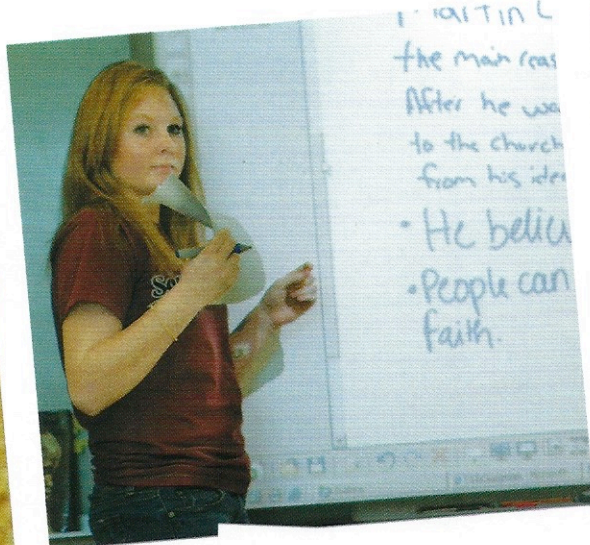 the main reas
After he wa
to the church
from his idea
• He believ
• People can
faith.